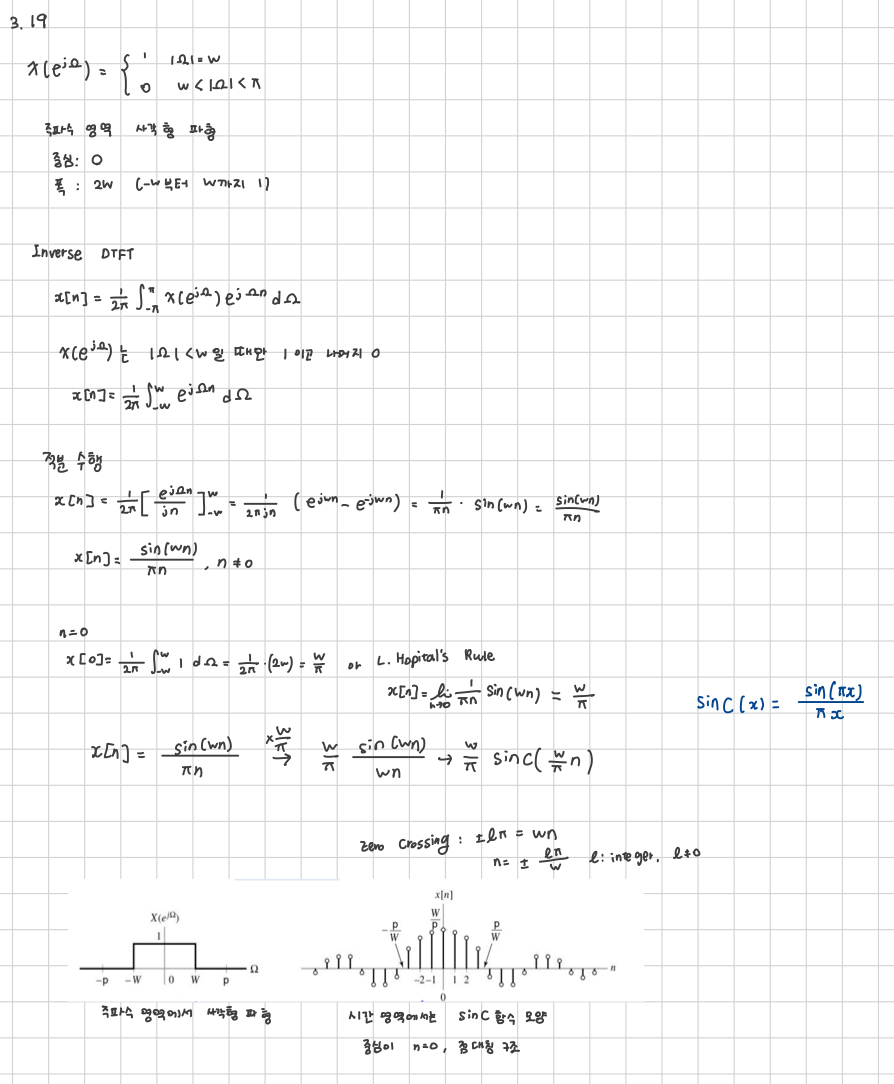 3. 19
X(e^{jΩ}) = { 1 |Ω|=W
0 W<|Ω|<π
주파수 영역 사각형 파형
중심: 0
폭 : 2W (-W부터 W까지 1)
Inverse DTFT
x[n] = \frac{1}{2π} ∫_{-π}^{π} X(e^{jΩ}) e^{jΩn} dΩ
X(e^{jΩ}) 는 |Ω|<W 일 때만 1 이고 나머지 0
x[n] = \frac{1}{2π} ∫_{-W}^{W} e^{jΩn} dΩ
적분 수행
x[n] = \frac{1}{2π} [\frac{e^{jΩn}}{jn}]_{-W}^{W} = \frac{1}{2πjn} (e^{jWn} - e^{-jWn}) = \frac{1}{πn} · sin(Wn) = \frac{sin(Wn)}{πn}
x[n] = \frac{sin(Wn)}{πn} , n≠0
n=0
x[0] = \frac{1}{2π} ∫_{-W}^{W} 1 dΩ = \frac{1}{2π}·(2W) = \frac{W}{π} or L. Hopital's Rule
x[n] = lim_{n→0} \frac{1}{πn} sin(Wn) = \frac{W}{π}
sinC(x) = \frac{sin(πx)}{πx}
x[n] = \frac{sin(Wn)}{πn} ×\frac{W}{π} → \frac{W}{π} \frac{sin(Wn)}{Wn} → \frac{W}{π} sinC(\frac{W}{π}n)
Zero Crossing : ±lπ = Wn
n= ± \frac{lπ}{W} l: integer. l≠0
X(e^{jΩ})
1
-p -W 0 W p Ω
x[n]
\frac{W}{p}
-\frac{p}{W} \frac{p}{W}
-2 -1 1 2 n
0
주파수 영역에서 사각형 파형
시간 영역에서는 sinC 함수 모양
중심이 n=0, 점대칭 구조